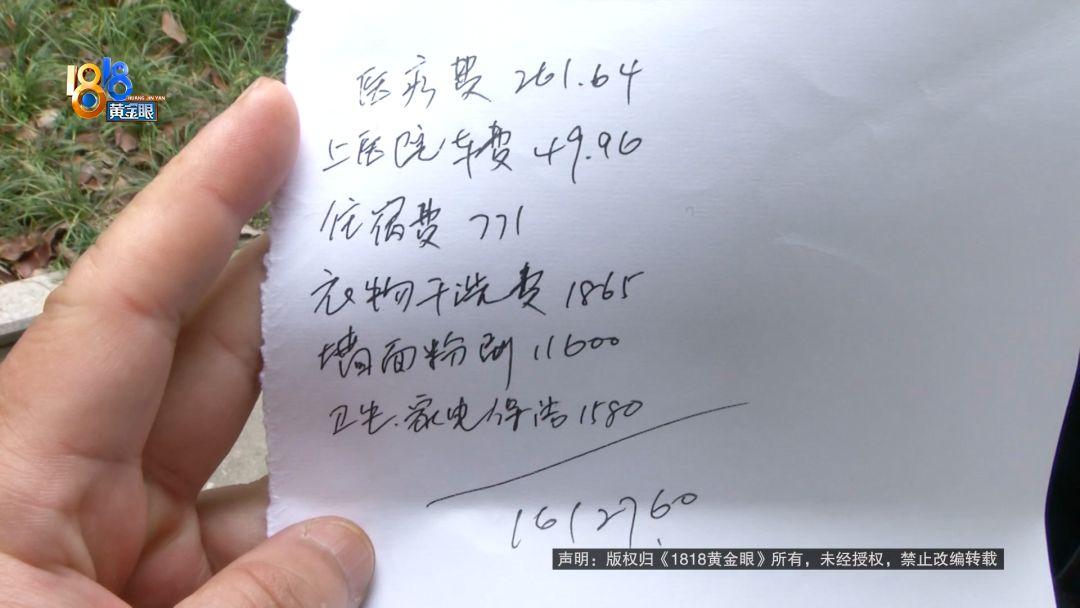 1818
HUANG JIN YAN
黄金眼
医疗费 261.64
上医院车费 49.96
住宿费 771
衣物干洗费 1865
墙面粉刷 11600
卫生.家电保洁 1580
16127.60
声明：版权归《1818黄金眼》所有，未经授权，禁止改编转载